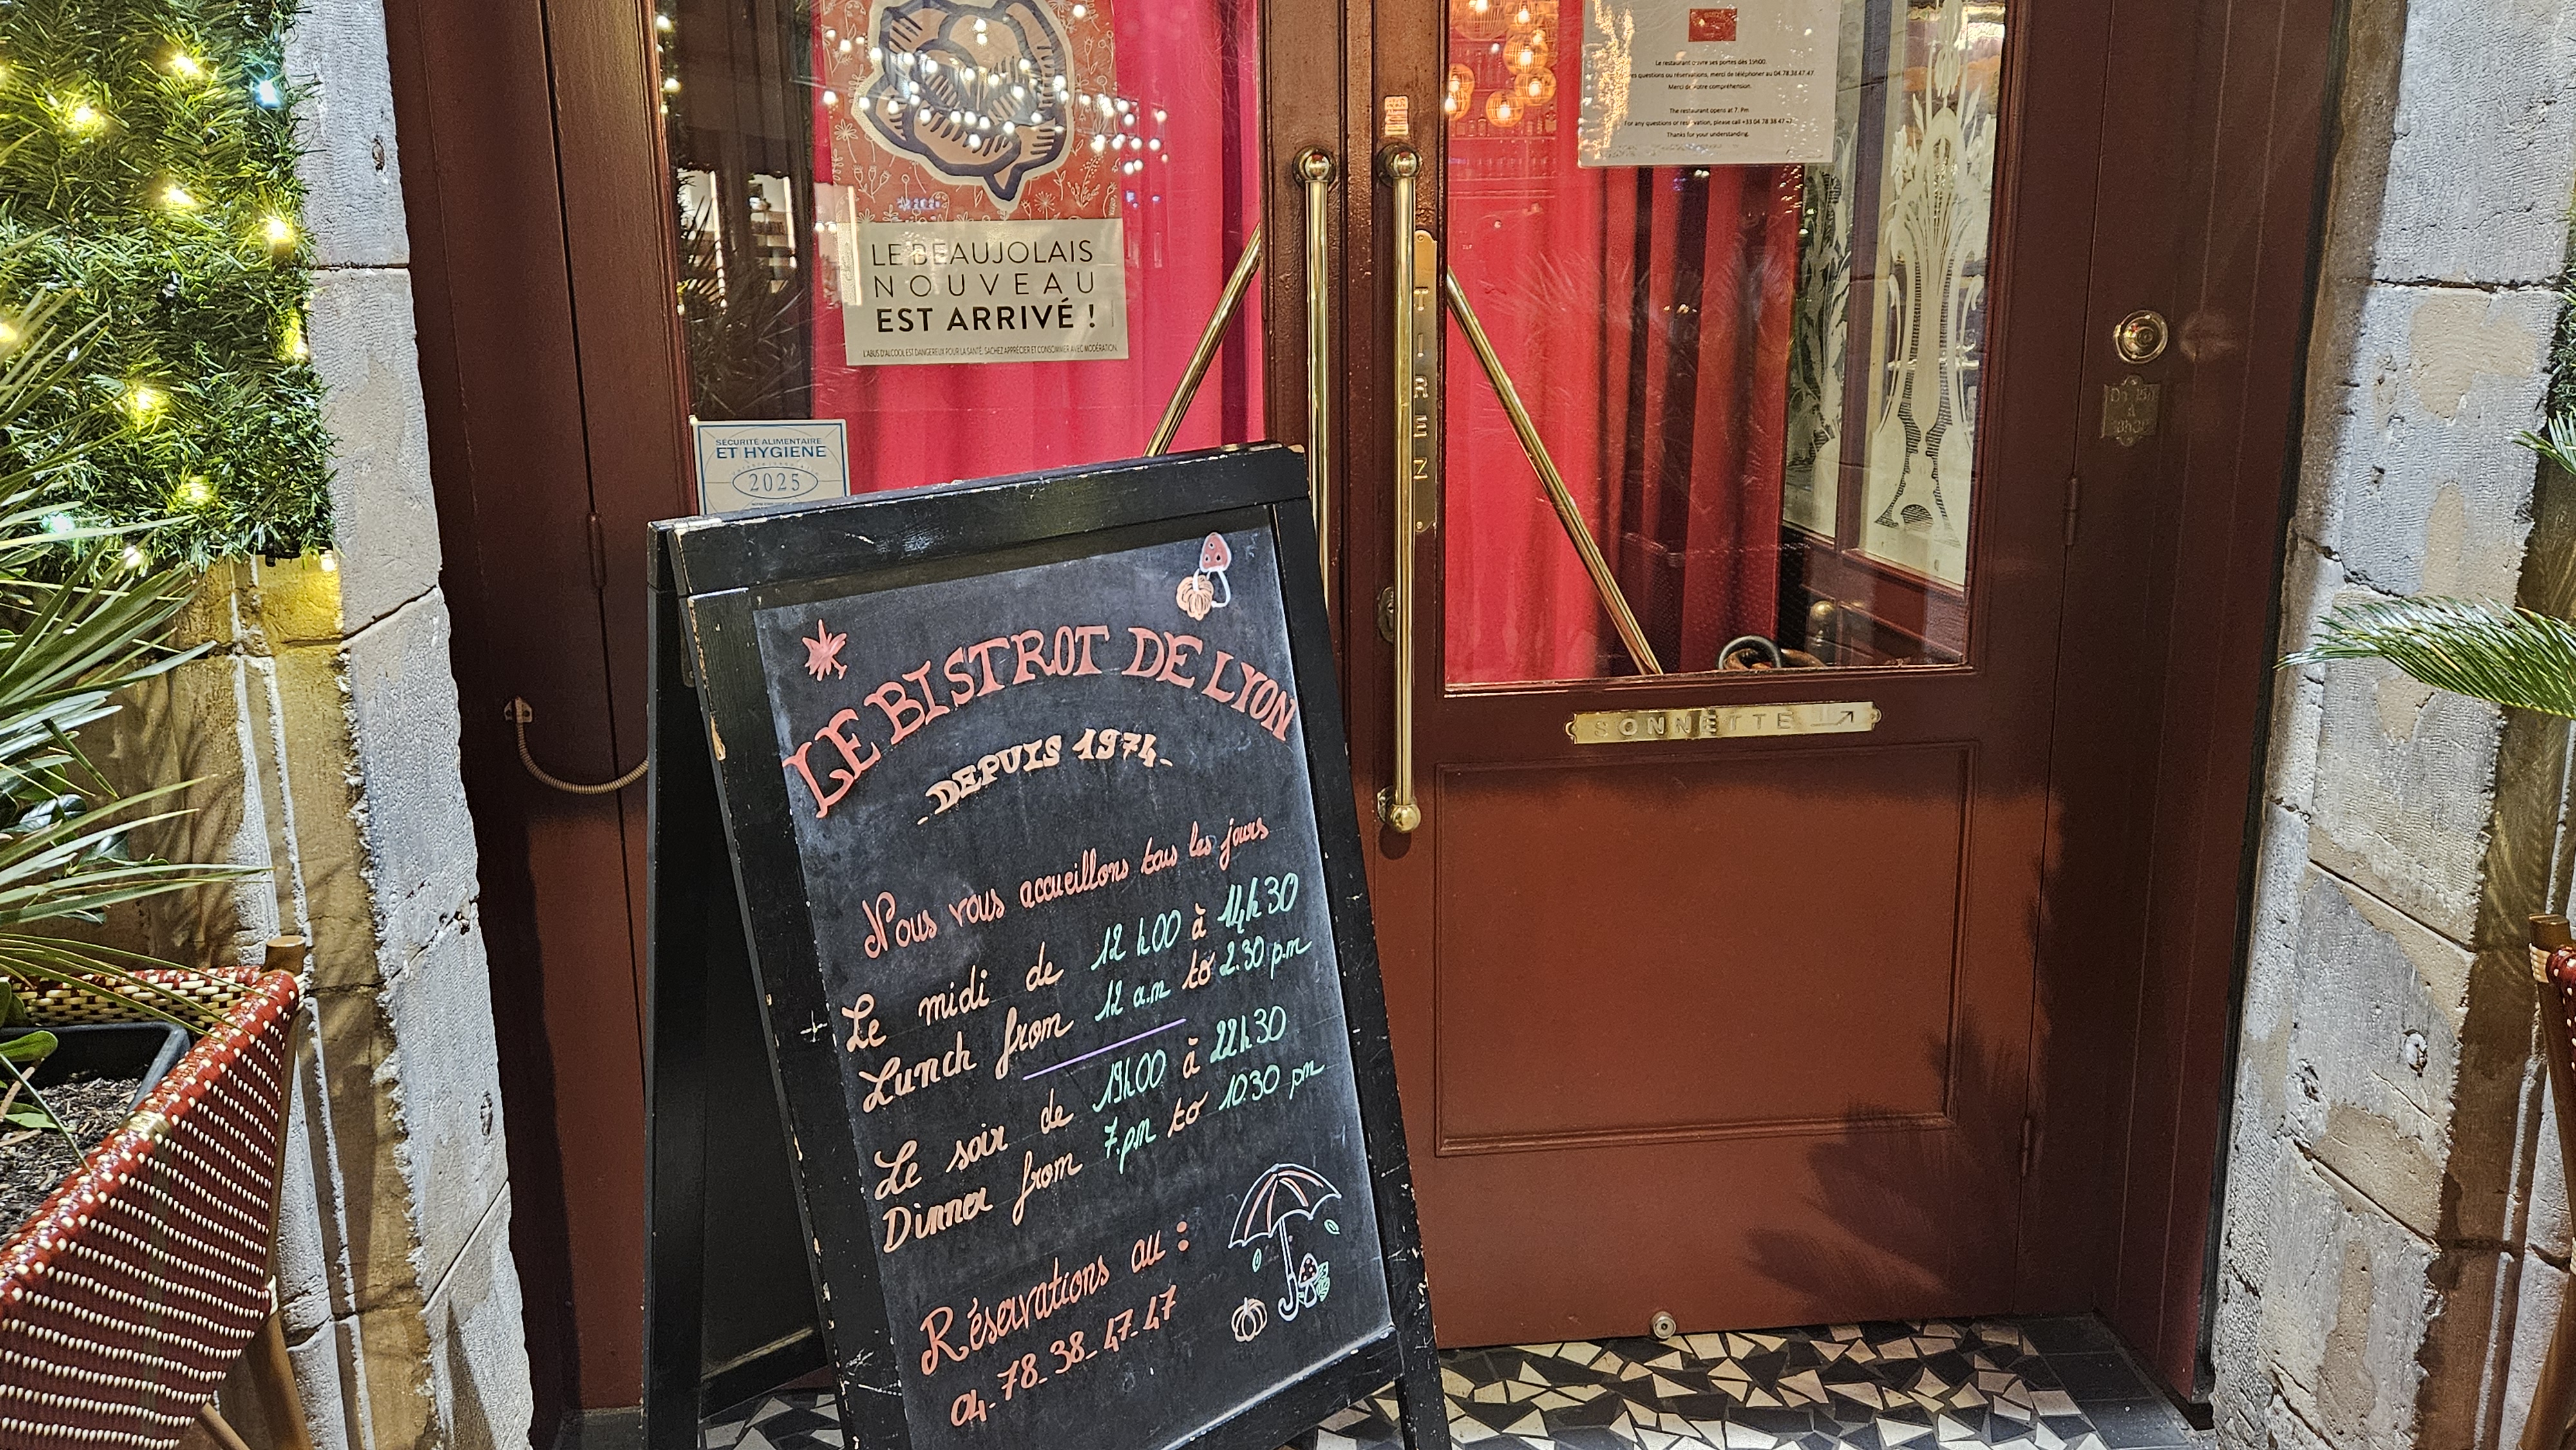 LE BEAUJOLAIS
NOUVEAU
EST ARRIVÉ !
L'ABUS D'ALCOOL EST DANGEREUX POUR LA SANTÉ. SACHEZ APPRÉCIER ET CONSOMMER AVEC MODÉRATION
Le restaurant ouvre ses portes dès 19h00.
questions ou réservations, merci de téléphoner au 04.78.38.47.47
Merci de votre compréhension.
The restaurant opens at 7. Pm
For any questions or reservation, please call +33 04 78 38 47
Thanks for your understanding.
SÉCURITÉ ALIMENTAIRE
ET HYGIENE
2025
TIREZ
SONNETTE
LE BISTROT DE LYON
DEPUIS 1974
Nous vous accueillons tous les jours
Le midi de 12h00 à 14h30
Lunch from 12 a.m to 2.30 p.m
Le soir de 19h00 à 22h30
Dinner from 7.pm to 10.30 pm
Réservations au :
04_78_38_47_47